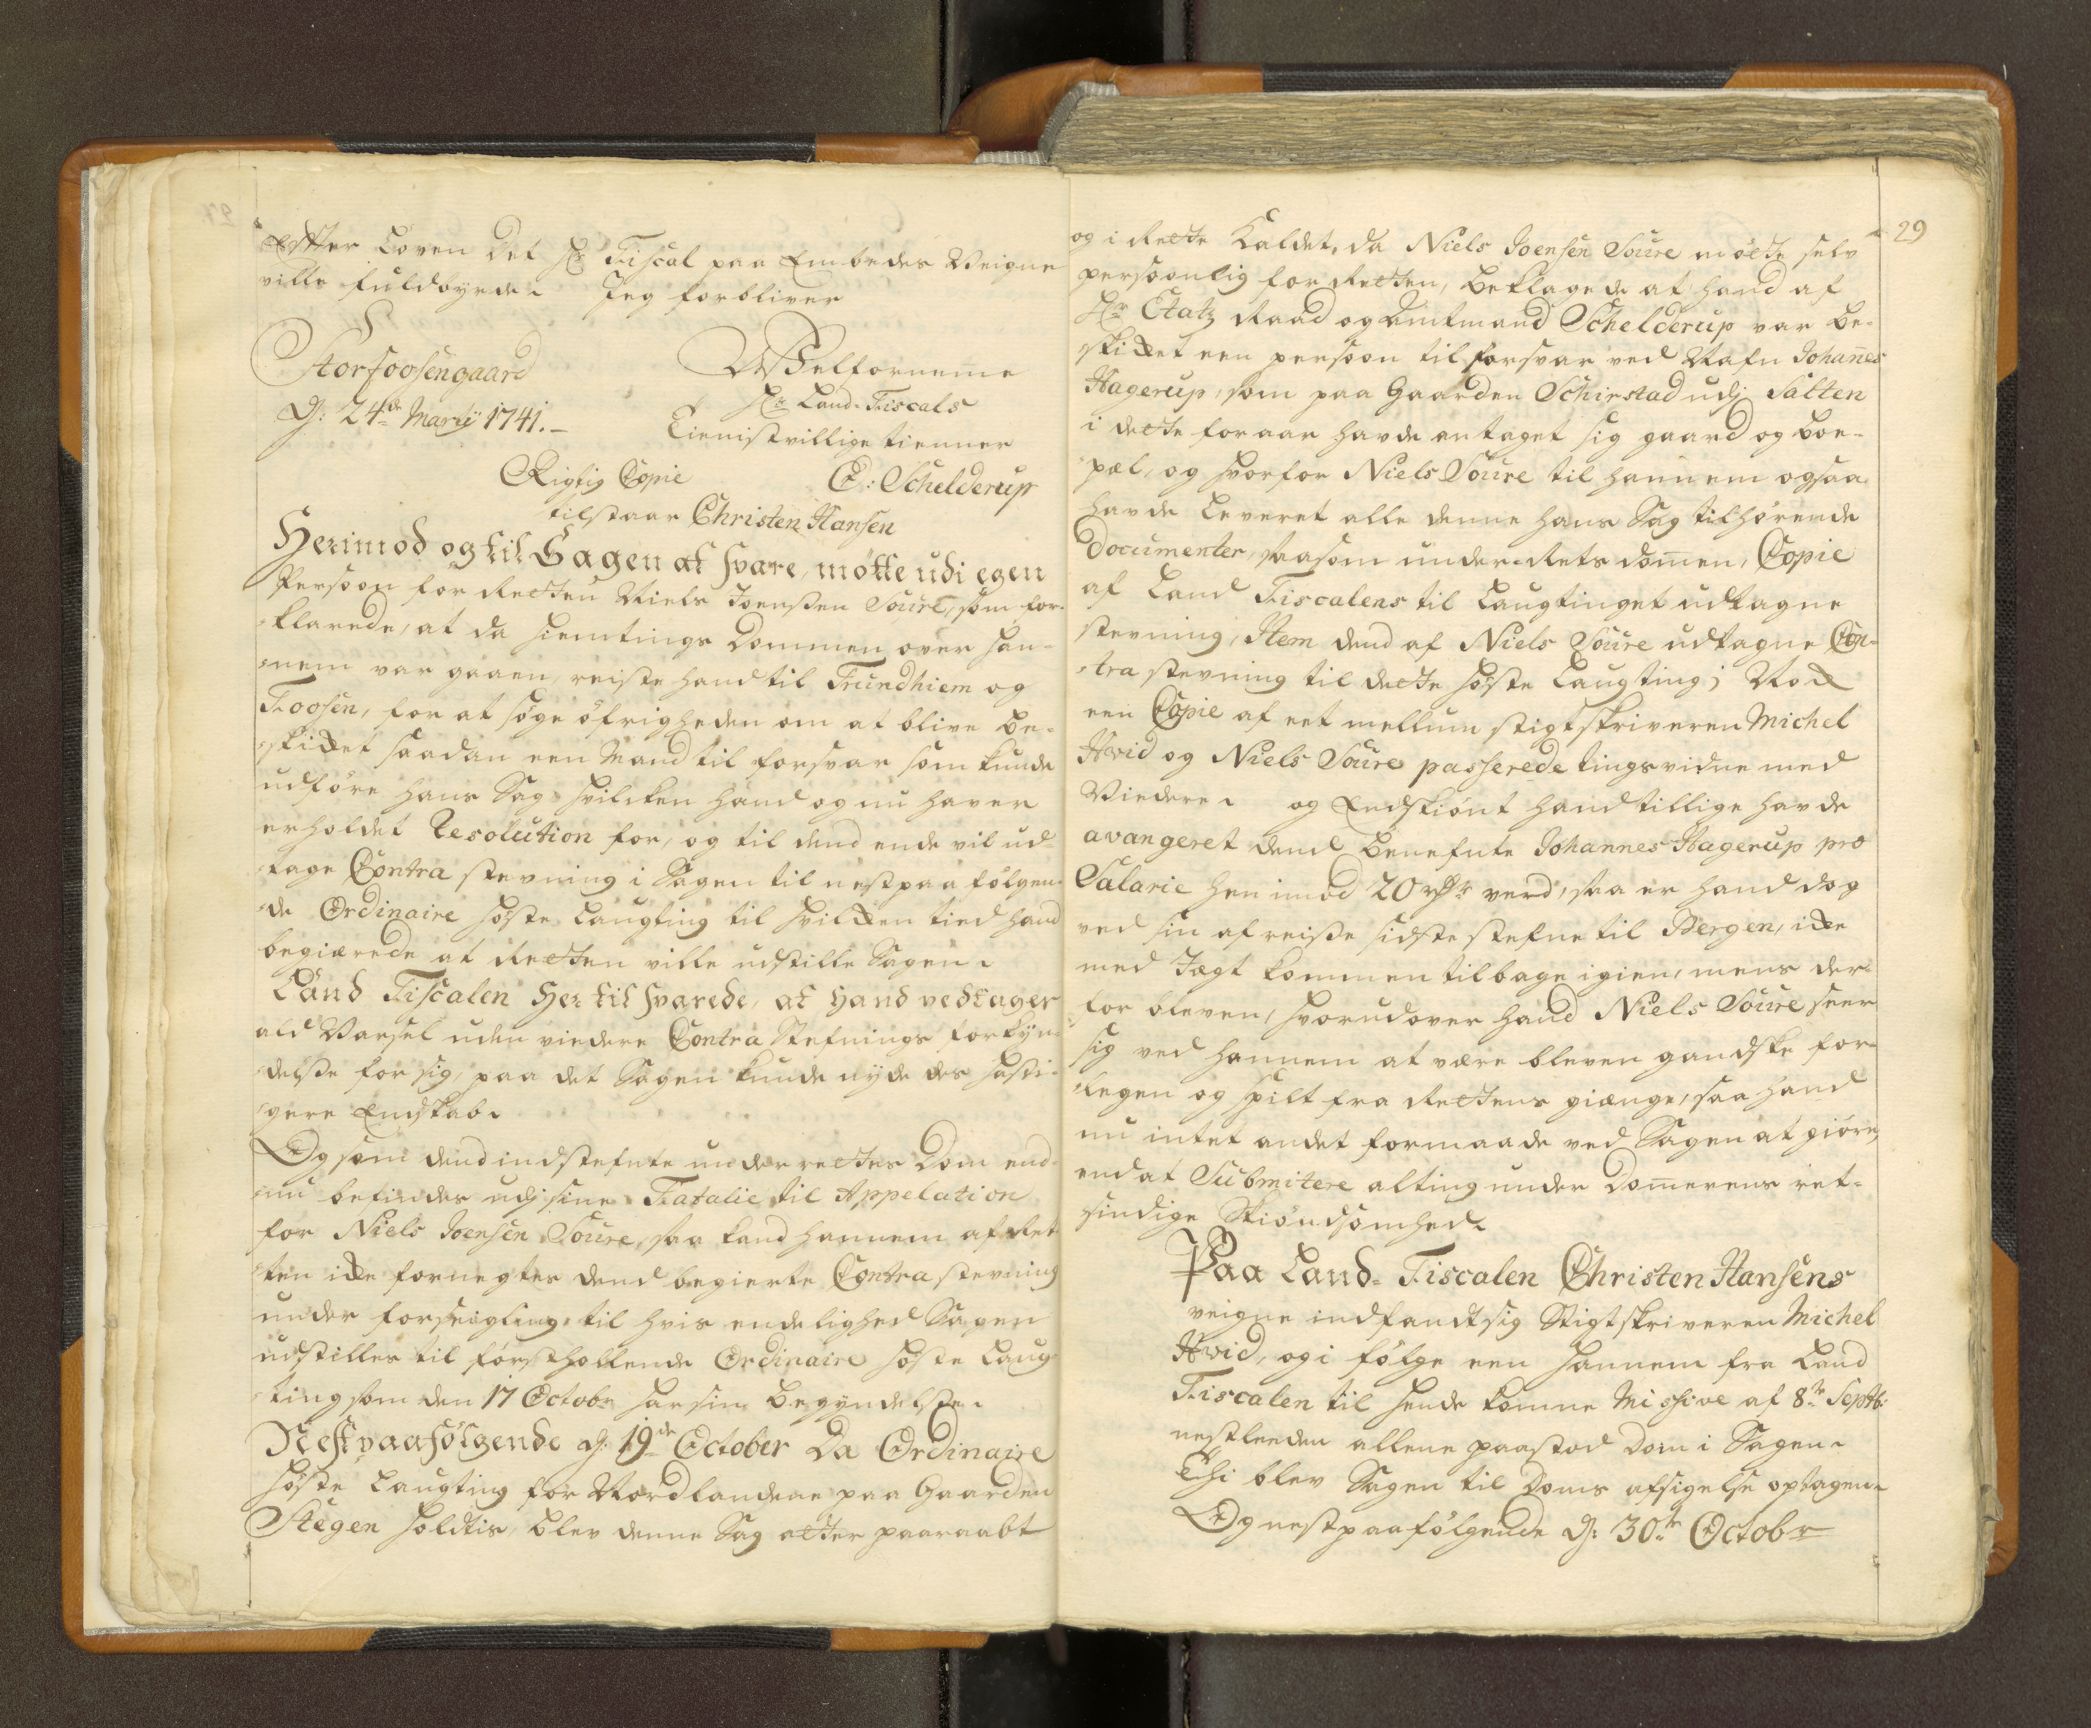 Efter Loven det Hr Fiscal paa Embedes Veigne
ville fuldbyrde. Jeg forbliver
Storfoosengaard
d: 24de Martij 1741.-
Velfornemme
Hr Land-Fiscals
Tienistvillige tienner
Rigtig Copie
E: Schelderup
tilstaar Christen Hansen
Herimod og til Sagen at svare, mötte udi egen
Persoon for Retten Niels Joenssen Soure, som for-
klarede, at da Hiemtings Dommen over han-
nem var gaaen, reiste hand til Trundhiem og
Foosen, for at söge öfrigheden om at blive be-
skicket saadan een Mand til forsvar som kunde
udföre hans Sag hvilcken hand og nu haver
erholdet Resolution for, og til dend ende vil ud-
tage Contra stevning i Sagen til nestpaafölgen-
de Ordinaire Höste Laugting til hvilcken tied hand
begiærede at Retten ville udstille Sagen.
Land Fiscalen Hertil svarede, at hand vedtager
ald Varsel uden viedere Contra Stefnings forkÿn-
delsse for sig, paa det Sagen kunde nyde des hasti-
gere Endskab.
Og som dend indstefnte underrettes Dom end-
nu befindes udj sine Fatalie til Appelation
for Niels Joensen Soure, saa kand hannem af Ret-
ten icke fornegtes dend begierte Contra stevning
under forseigling, til hvis endelighed Sagen
udstilles til förstholdende Ordinaire Höste Laug-
ting som den 17 Octobr har sin begyndelsse.
Nestpaafölgende d: 19de October Da Ordinaire
Höste Laugting for Nordlandene paa Gaarden
Stegen holdtis, blev denne Sag atter paaraabt
29
og i Rette Kaldet, da Niels Joensen Soure mötte selv
persoonlig for Retten, beklagede at hand af
Hr Etatz Raad og Amtmand Schelderup var be-
skicket een persoon til forsvar ved Nafn Johannes
Hagerup, som paa Gaarden Schirstad udj Salten
i dette foraar havde antaget sig gaard og boe-
pæl, og hvorfor Niels Soure til hannem ogsaa
havde Leveret alle denne hans Sag tilhörende
Documenter, saasom under-Rets domen, Copie
af Land Fiscalens til Laugtinget udtagne
stevning, Item dend af Niels Soure udtagne Con-
tra stevning til dette Höste Laugting; Nock
een Copie af eet mellum stigtskriveren Michel
Hvid og Niels Soure passerede tingsvidne med
Viedere. og Endskiönt hand tillige havde
avangeret dend benefnte Johannes Hagerup pro
Salarie hen imod 20 rdr verd, saa er hand dog
ved sin afreisse sidste stefne til Bergen, icke
med Jægt kommen tilbage igien, mens der-
for bleven, hvorudover hand Niels Soure seer
sig ved hannem at være bleven gandske for-
legen og spilt fra Rettens giænge, saa hand
nu intet andet formaade ved Sagen at giöre,
end at Submitere alting under Domerens ret-
sindige Skiöndsomhed.
Paa Land-Fiscalen Christen Hansens
veigne indfandt sig Stigtskriveren Michel
Hvid, og i fölge een hannem fra Land
Fiscalen til hende komne Missive af 8te Septb:
nestleeden allene paastod Dom i Sagen.
Thi blev Sagen til Doms afsigelse optagen.
Og nestpaafölgende d: 30te Octobr